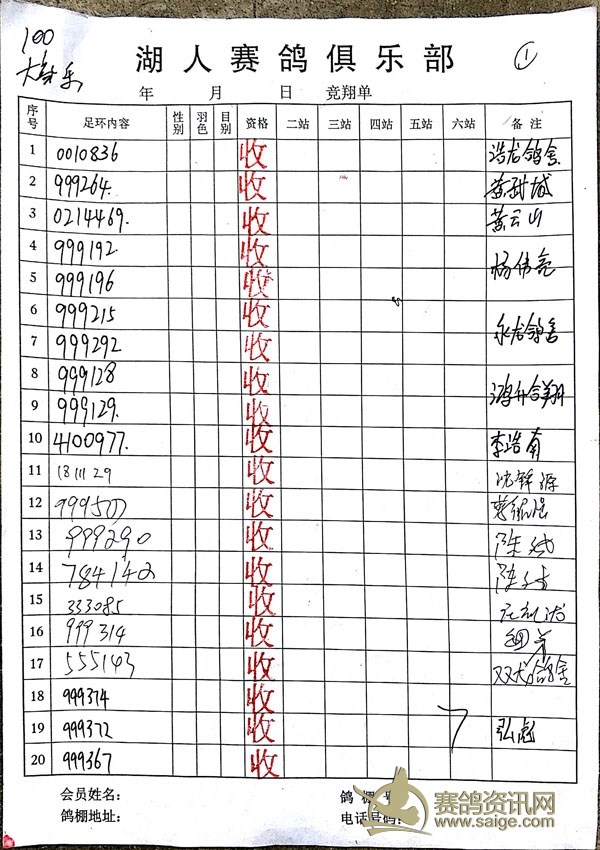 100
大乐
①
湖人赛鸽俱乐部
年 月 日 竞翔单
序号 足环内容 性别 羽色 目别 资格 二站 三站 四站 五站 六站 备注
1 0010836 收 浩龙鸽舍
2 999264. 收 黄甜城
3 0214469. 收 黄云山
4 999192 收 杨伟亮
5 999196 收
6 999215 收 永龙鸽舍
7 999292 收
8 999128 收 鸿升合翔
9 999129. 收
10 4100977. 收 李浩南
11 1811129 收 沈锌源
12 999507 收
13 999290 收 陈
14 784142 收 陈
15 333085 收
16 999314 收 细弟
17 555143 收 双龙鸽舍
18 999374 收
19 999372 收 弘彪
20 999367 收
会员姓名： 鸽棚号
鸽棚地址： 电话号码：
赛鸽资讯网
www.saige.com